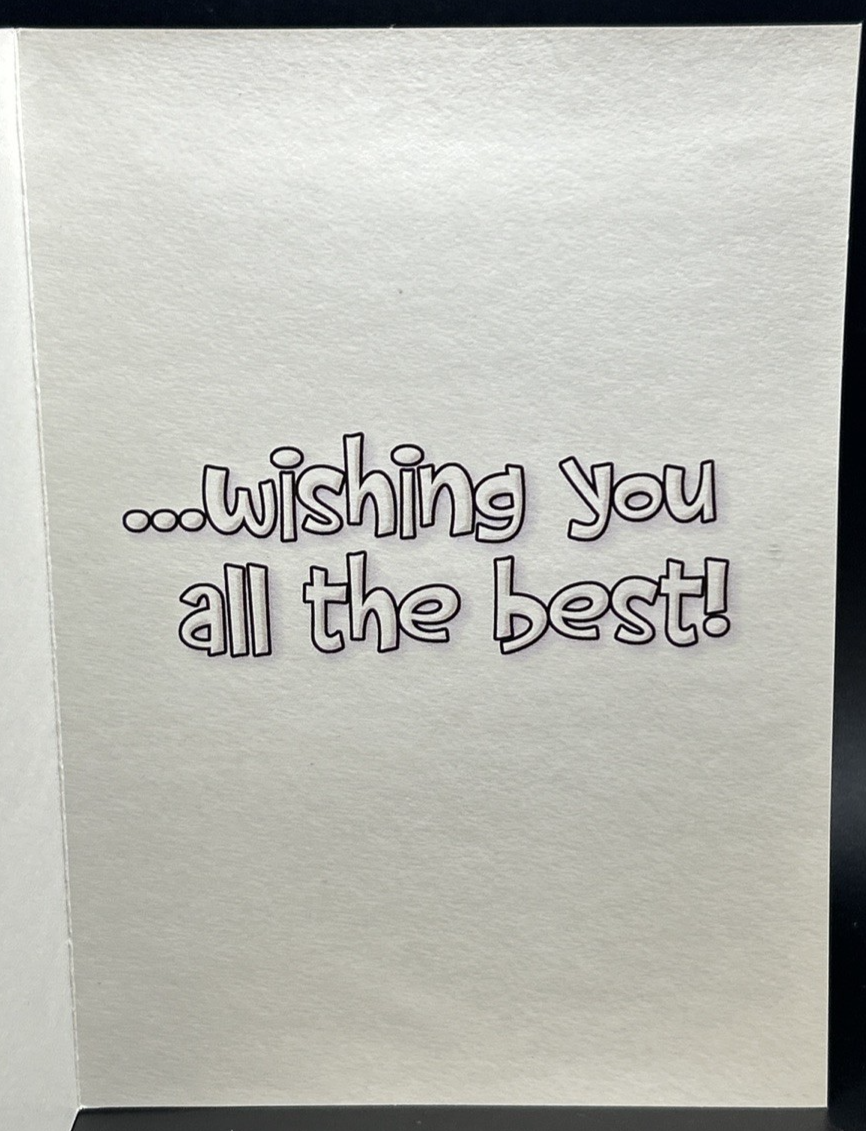 ...wishing you
all the best!